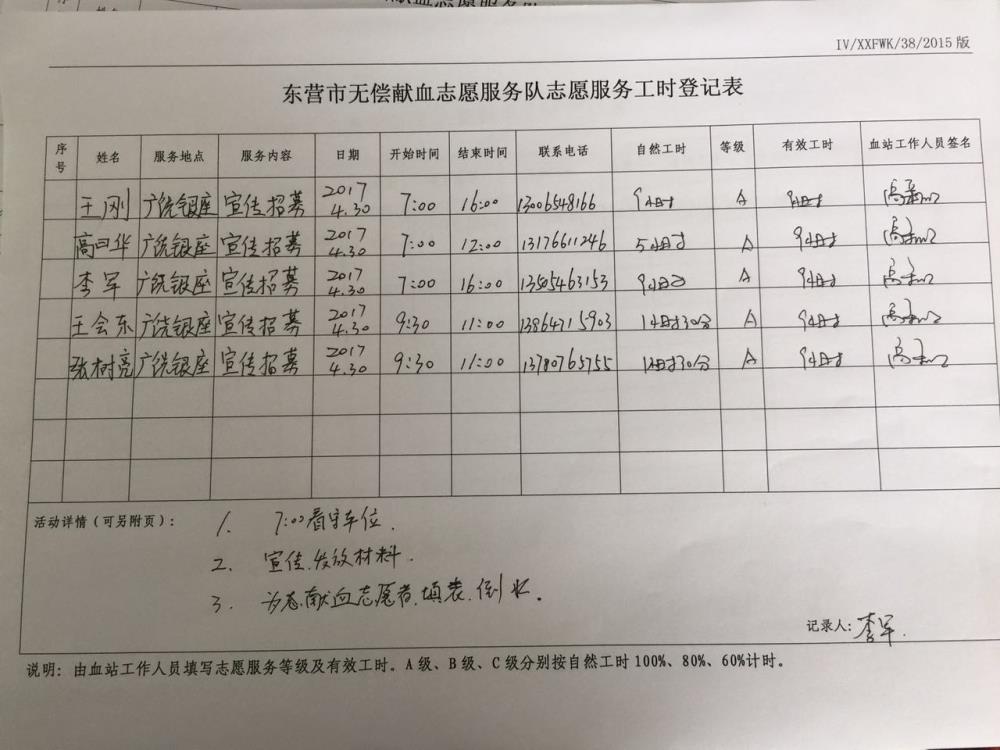 献血志愿服务队
IV/XXFWK/38/2015 版
东营市无偿献血志愿服务队志愿服务工时登记表
序号 姓名 服务地点 服务内容 日期 开始时间 结束时间 联系电话 自然工时 等级 有效工时 血站工作人员签名
王刚 广饶银座 宣传招募 2017 4.30 7:00 16:00 13006548166 9小时 A 9小时
高曰华 广饶银座 宣传招募 2017 4.30 7:00 12:00 13176611246 5小时 A 9小时
李军 广饶银座 宣传招募 2017 4.30 7:00 16:00 13505463153 9小时 A 9小时
王会东 广饶银座 宣传招募 2017 4.30 9:30 11:00 13864715903 1小时30分 A 9小时
张树亮 广饶银座 宣传招募 2017 4.30 9:30 11:00 13780765755 1小时30分 A 9小时
活动详情(可另附页): 1. 7:00看守车位.
2. 宣传.发放材料.
3. 为志献血志愿者.填表.倒水.
记录人: 李军.
说明: 由血站工作人员填写志愿服务等级及有效工时。A 级、B 级、C 级分别按自然工时 100%、80%、60%计时。